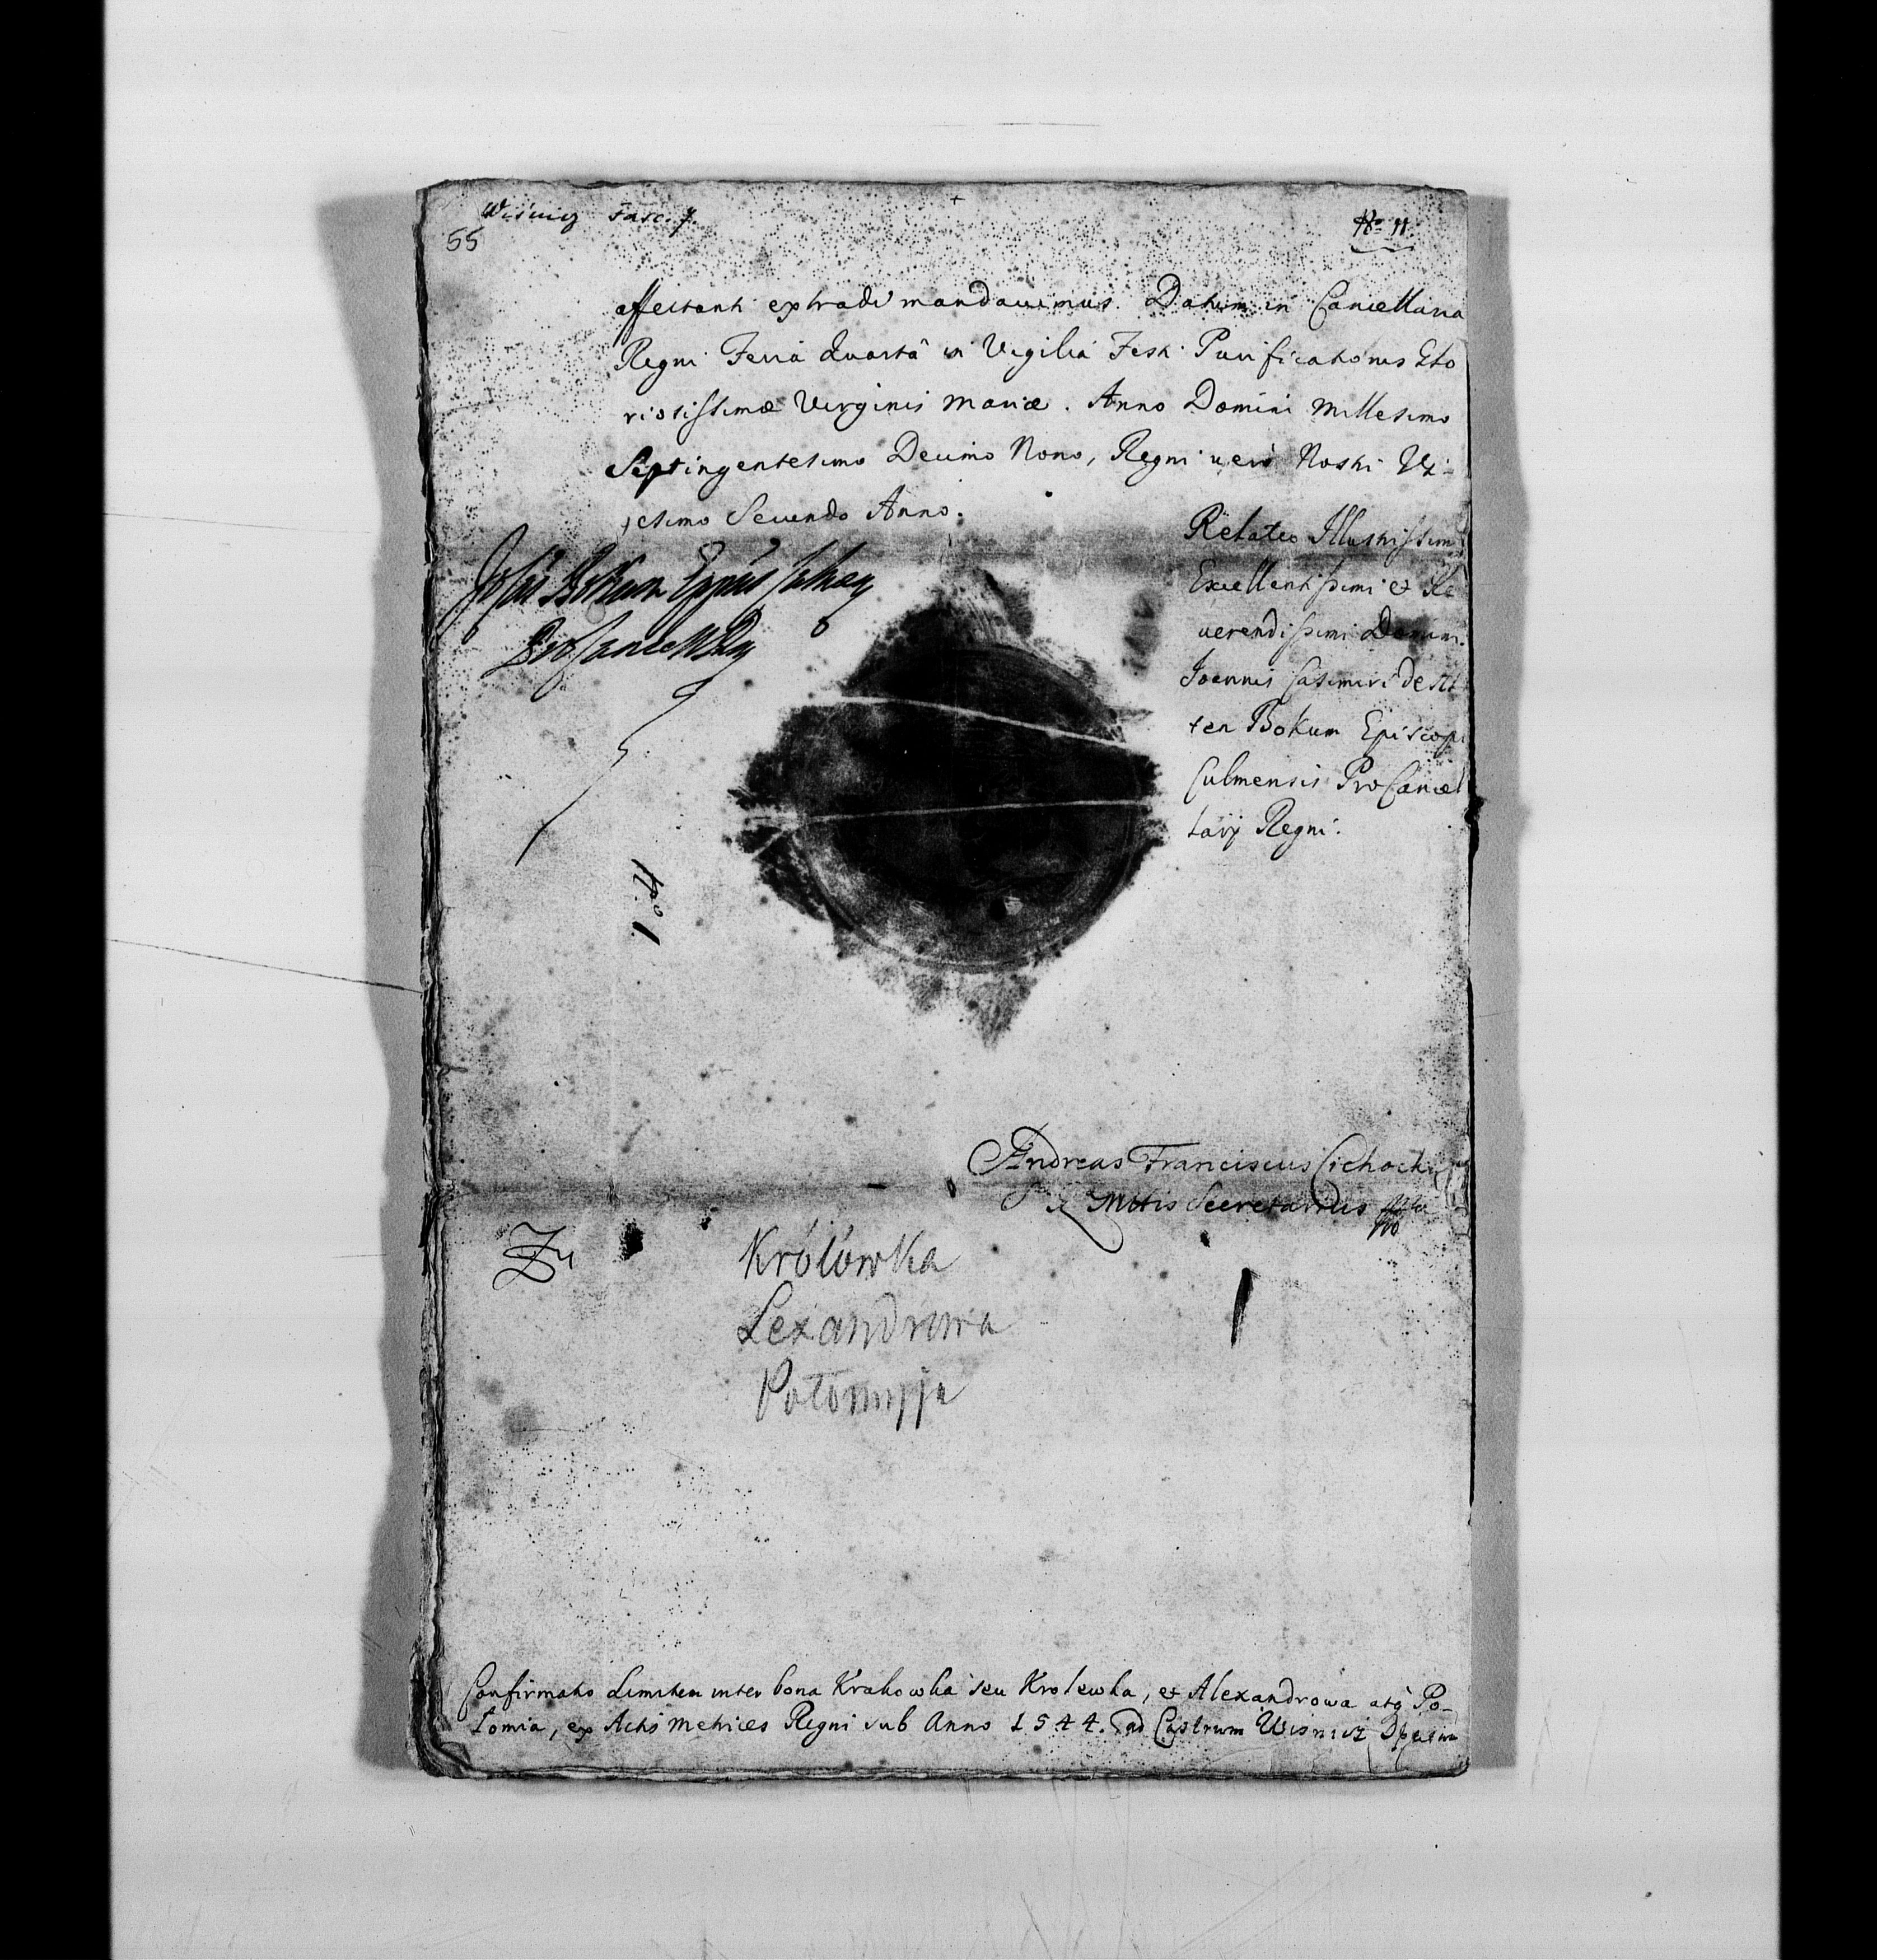 Wiśnicz Fasc. 7.
55
No 11.
affectanti extradi mandavimus. Datum in Cancellaria
Regni Feria Quarta in Vigilia Festi Purificationis Glo
riosissimæ Virginis Mariæ. Anno Domini Millesimo
Septingentesimo Decimo Nono, Regni vero Nostri Vi-
gesimo Secundo Anno.
Relatio Illustrissimi
Excellentissimi et Re
verendissimi Domini
Joannis Casimiri de Al
ten Bokum Episcopi
Culmensis ProCancel
larij Regni.
No 1.
Andreas Franciscus Cichocki
Mttis Secretarius
Królówka
Lexandrowa
Połomyja
Confirmatio Limitum inter bona Krakowka seu Krolewka, et Alexandrowa atq Po-
lomia, ex Actis Metrices Regni sub Anno 1544. ad Castrum Wisnicz